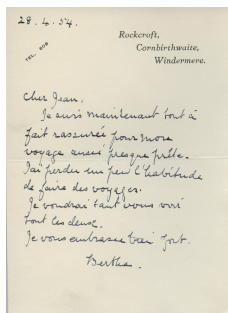 28.4.54.
TEL. 608
Rockcroft,
Cornbirthwaite,
Windermere.
Cher Jean.
Je suis maintenant tout à
fait rassurée pour mon
voyage aussi presque prête.
J'ai perdu un peu l'habitude
de faire des voyages.
Je voudrai tant vous voir
tout les deux.
Je vous embrasse bien fort.
Bertha.